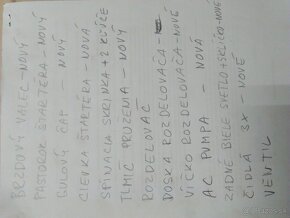 BRZDOVÝ VALEC - NOVÝ
PASTOROK ŠTARTÉRA - NOVÝ
GUĽOVÝ ČAP - NOVÝ
CIEVKA ŠTARTÉRA - NOVÁ
SPÍNACIA SKRINKA + 2 KĽÚČE
TLMIČ PRUŽENIA - NOVÝ
ROZDEĽOVAČ
DOSKA ROZDEĽOVAČA -
VIČKO ROZDEĽOVAČA - NOVÉ
AC PUMPA - NOVÁ
ZADNÉ BIELE SVETLO + SKLÍČKO - NOVÉ
ČIDLÁ 3X - NOVÉ
VENTIL